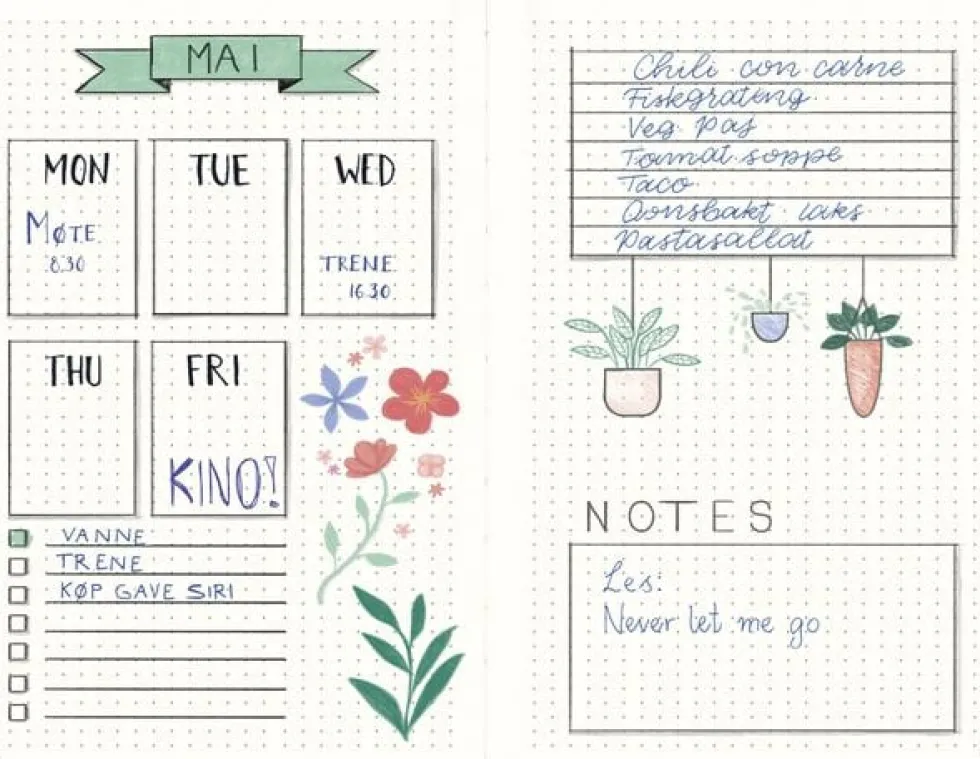 MAI
MON
TUE
WED
MØTE
8.30
TRENE
16.30
THU
FRI
KINO!
VANNE
TRENE
KØP GAVE SIRI
Chili con carne
Fiskegrateng
Veg. Paj
Tomat.soppe
Taco
Oonsbakt laks
Pastasallad
NOTES
Les:
Never let me go